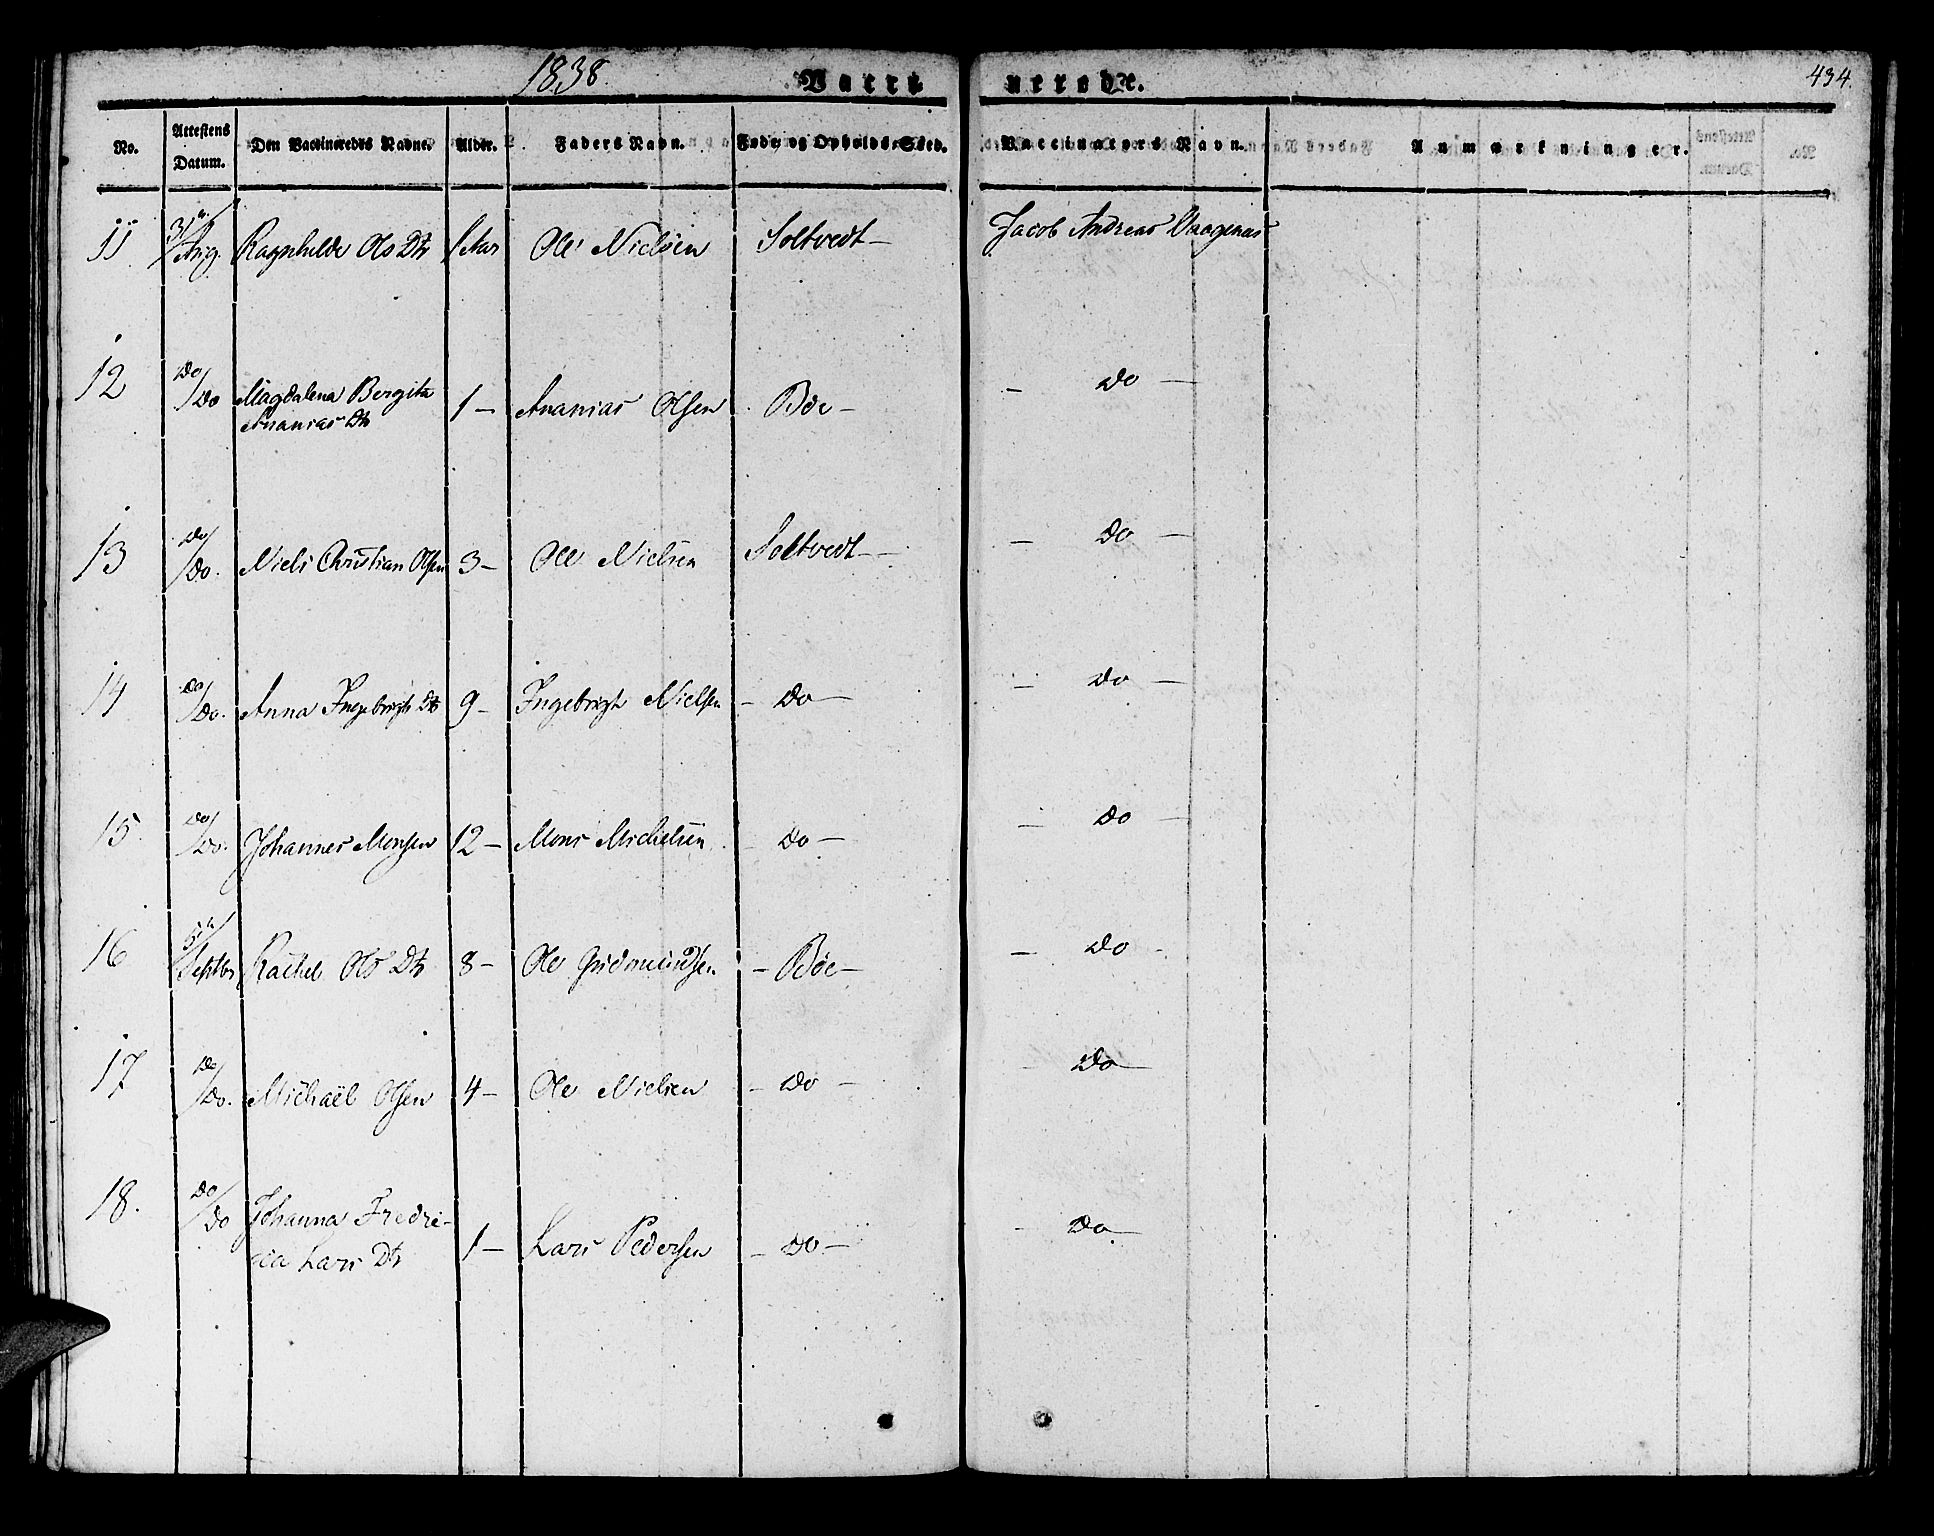 1838. Vacci nerede. 434.
No. Attestens Datum. Den Vaccineredes Navne. Alder. Faders Navn. Føde og Opholds-Sted. Vaccinators Navn. Anmærkninger.
11 31te/Aug. Ragnhilde Ols Dtr 1 Aar Ole Nielsen Soltvedt— Jacob Andreas Vaagenæs
12 Do/Do Magdalena Bergita Ananias Dtr 1— Ananias Olsen Bøe— — Do —
13 Do/Do. Niels Christian Olsen 3— Ole Nielsen Soltvedt— — Do —
14 Do/Do. Anna Ingebrigt Dtr 9— Ingebrigt Nielsen — Do — — Do —
15. Do/Do. Johannes Monsen 12— Mons Michelsen — Do — — Do —
16 5te/Septbr Rachel Ols Dtr 8— Ole Gudmundsen — Bøe— — Do —
17 Do/Do. Michaël Olsen 4— Ole Nielsen — Do — — Do —
18. Do/Do Johanna Fredri-
cia Lars Dtr 1— Lars Pedersen — Do — — Do —